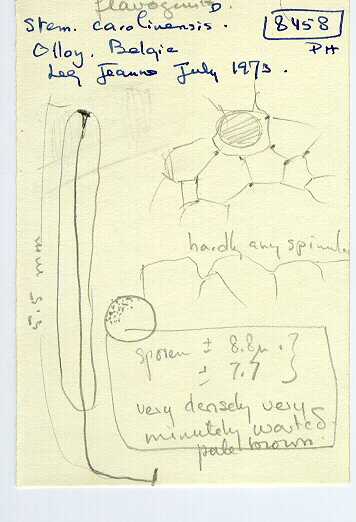 flavogenita
Stem. carolinensis. 8458
Olloy, Belgie PH
Leg Jeanne July 1973.
hardly any spinules
5.5 mm
sporen ± 8.8µ.
± 7.7
very densely very
minutely warted
pale brown.